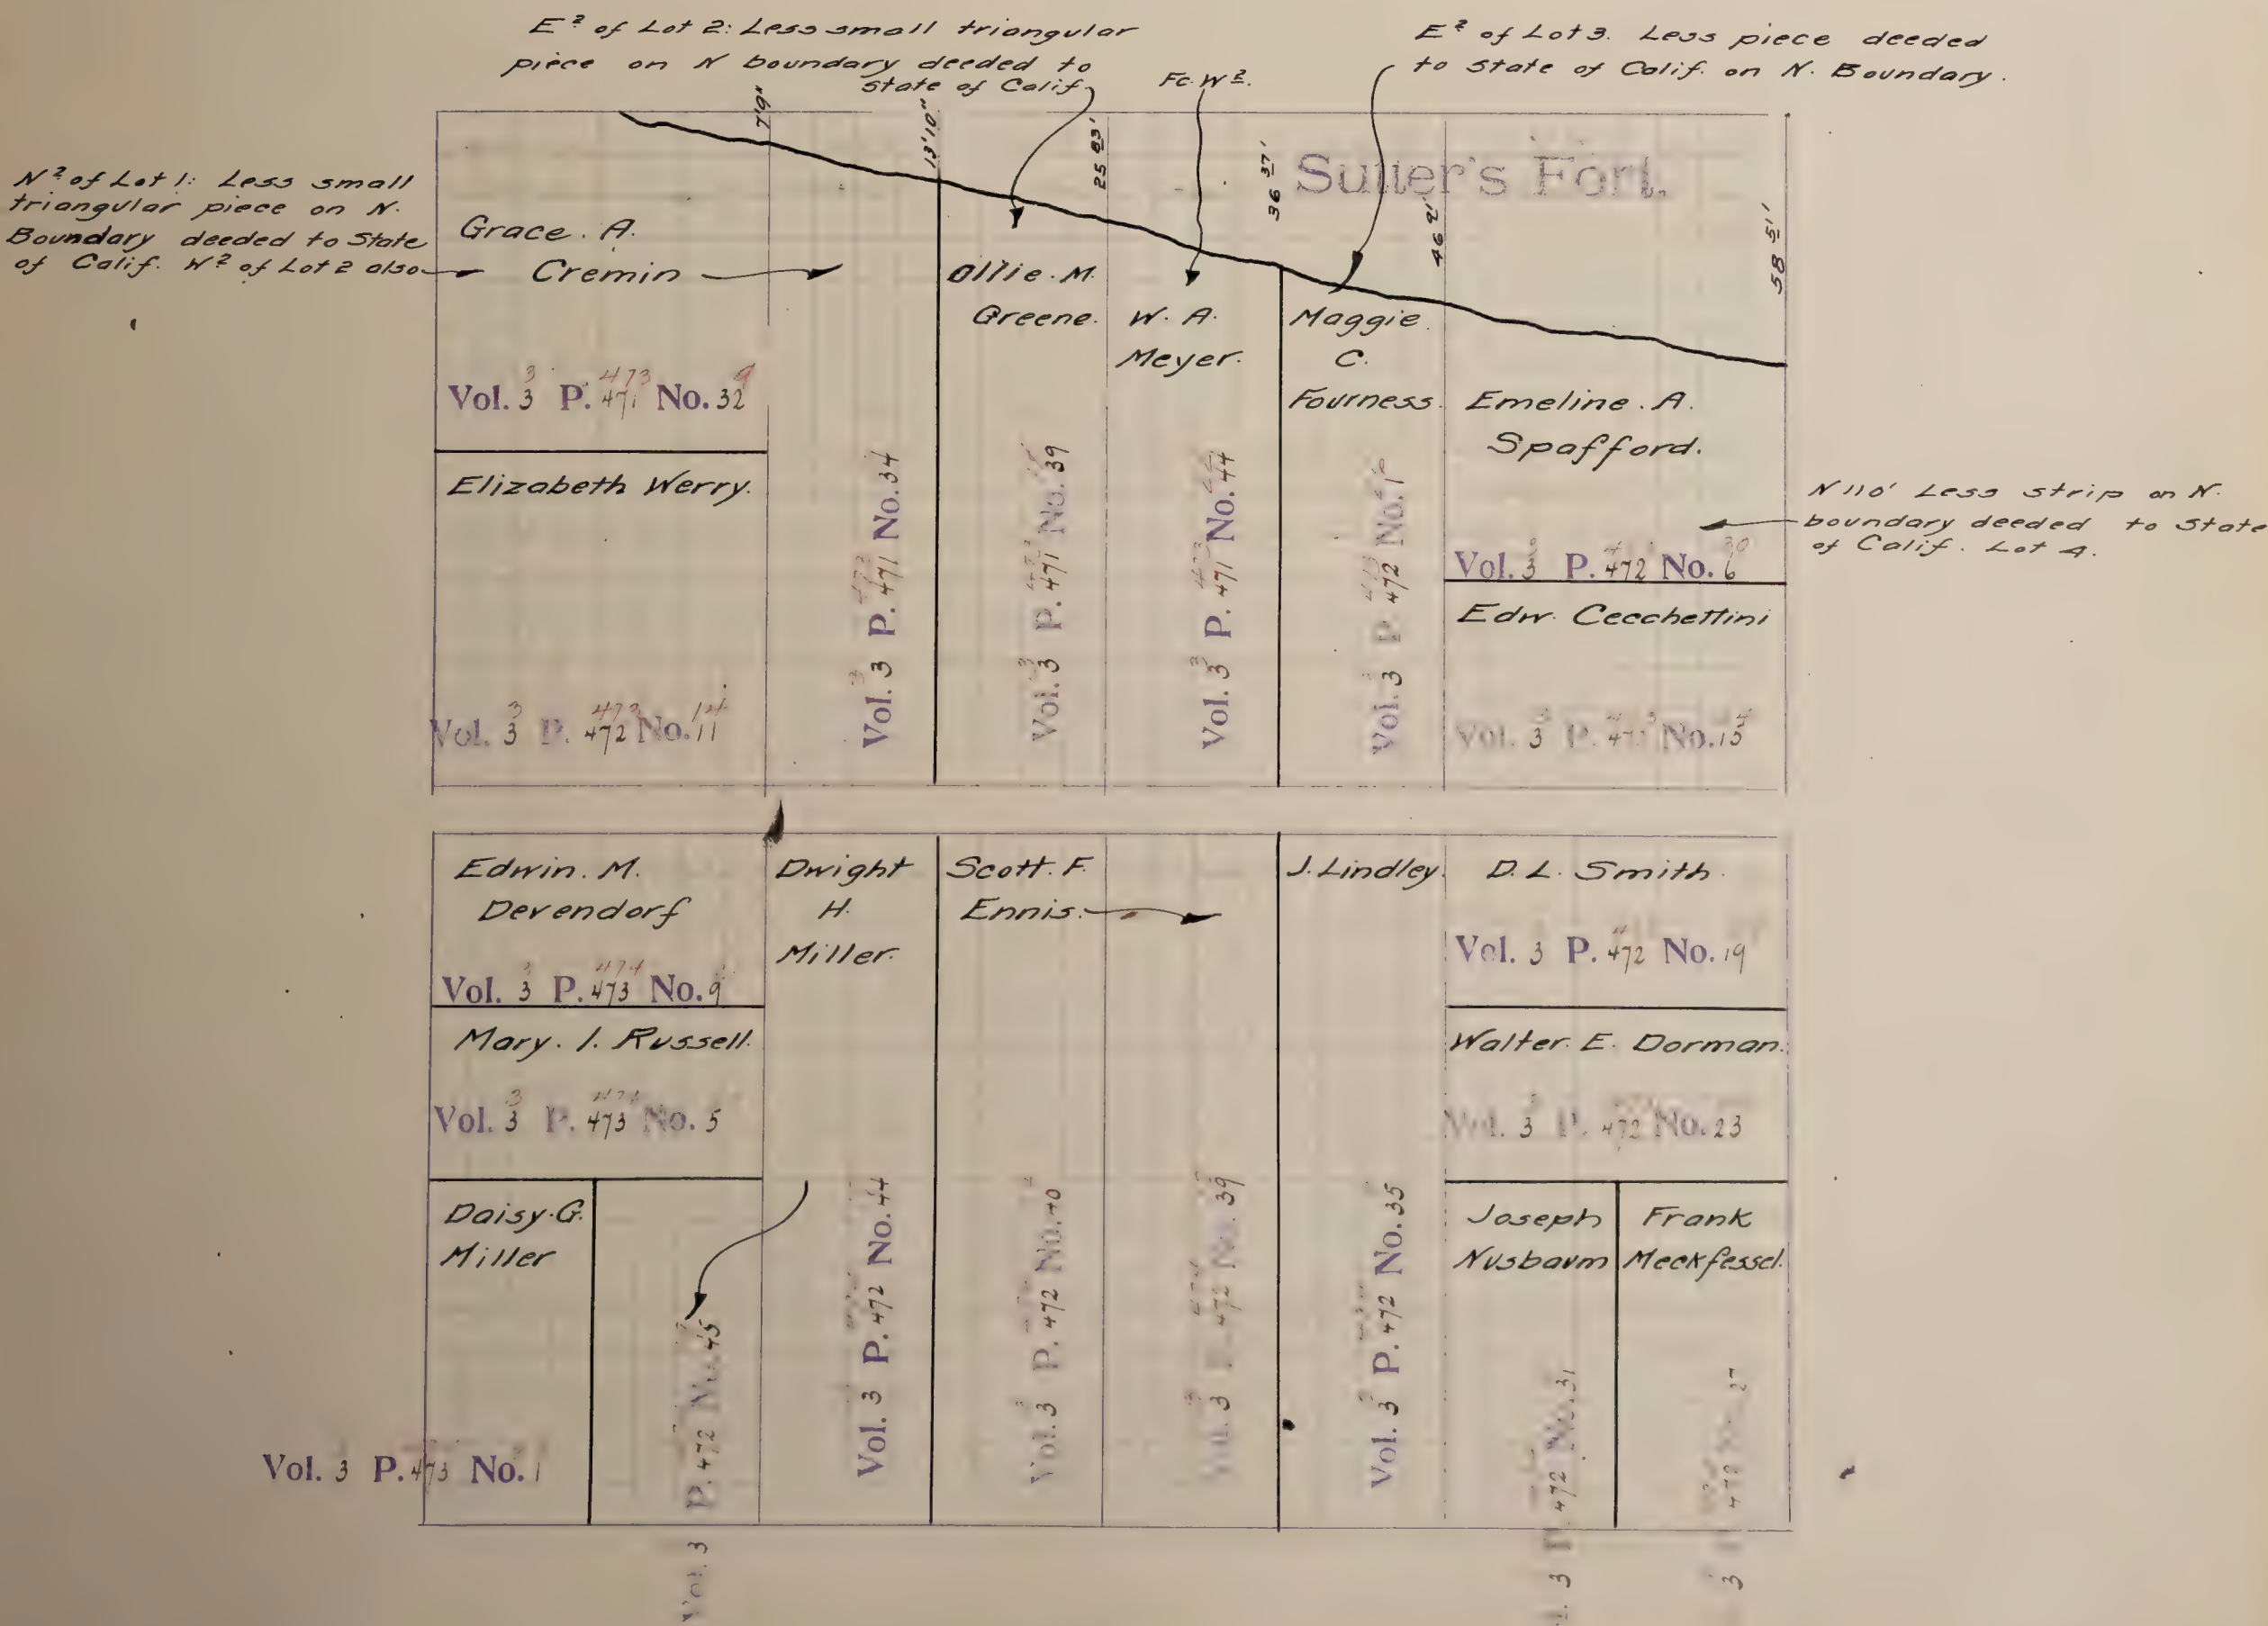 E² of Lot 2: Less small triangular
piece on N boundary deeded to
state of Calif.
Fc. W².
E² of Lot 3. Less piece deeded
to state of Calif. on N. Boundary.
7'9"
13'10"
25 83'
36 37'
46 91'
58 51'
Sutter's Fort.
N² of Lot 1: Less small
triangular piece on N.
Boundary deeded to State
of Calif. W² of Lot 2 also
Grace. A.
Cremin
Vol. 3 P. 471 No. 32
3 473 9
Elizabeth Werry.
Vol. 3 P. 472 No. 11
3 473 14
Vol. 3 P. 471 No. 34
Ollie. M.
Greene.
Vol. 3 P. 471 No. 39
W. A.
Meyer.
Vol. 3 P. 471 No. 44
Maggie.
C.
Fourness.
Vol. 3 P. 472 No. 1
Emeline. A.
Spafford.
Vol. 3 P. 472 No. 6
N 110' Less strip on N.
boundary deeded to State
of Calif. Lot 4.
Edw. Cecchettini
Vol. 3 P. No. 15
Edwin. M.
Devendorf
Vol. 3 P. 473 No. 9
474
Mary. I. Russell.
Vol. 3 P. 473 No. 5
3
Daisy. G.
Miller
Vol. 3 P. 473 No. 1
Vol. 3 P. 472 No. 45
Dwight
H.
Miller.
Vol. 3 P. 472 No. 44
Scott. F.
Ennis.
Vol. 3 P. 472 No. 40
Vol. 3 P. 472 No. 39
J. Lindley.
Vol. 3 P. 472 No. 35
D. L. Smith.
Vol. 3 P. 472 No. 19
Walter. E. Dorman.
Vol. 3 P. 472 No. 23
Joseph
Nusbaum
3 P. 472 No. 31
Frank
Meckfessel.
3 472 27